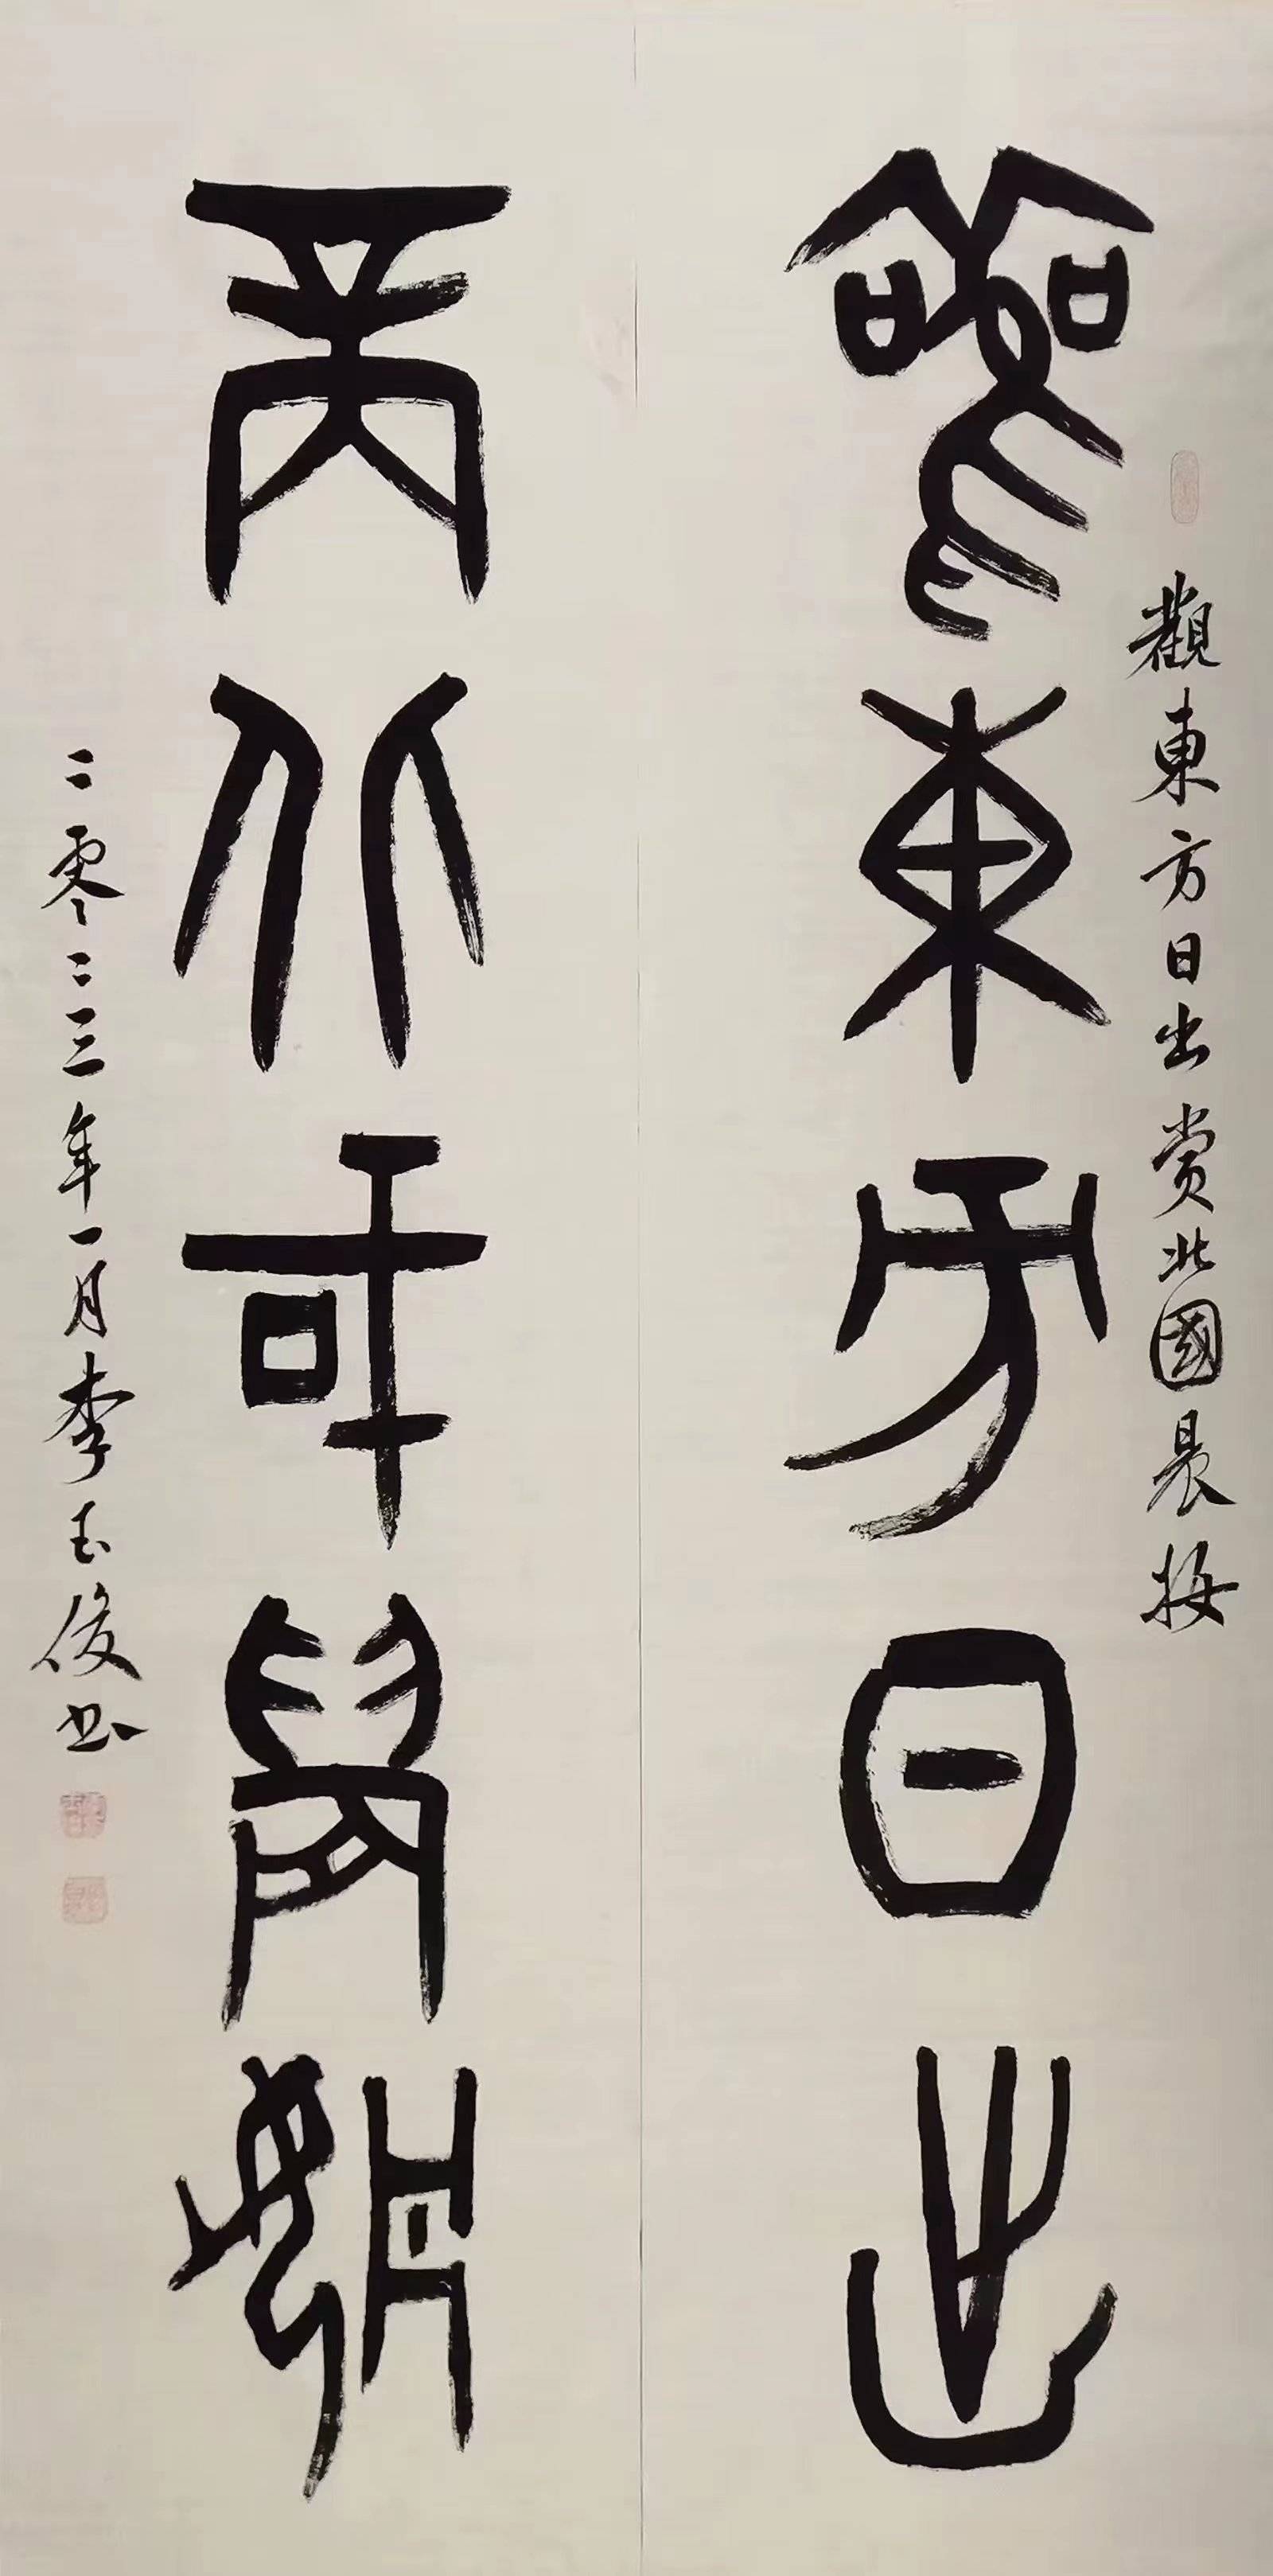 觀東方日出賞北國晨梅
觀東方日出
賞北國晨
二零二三年一月李玉俊书